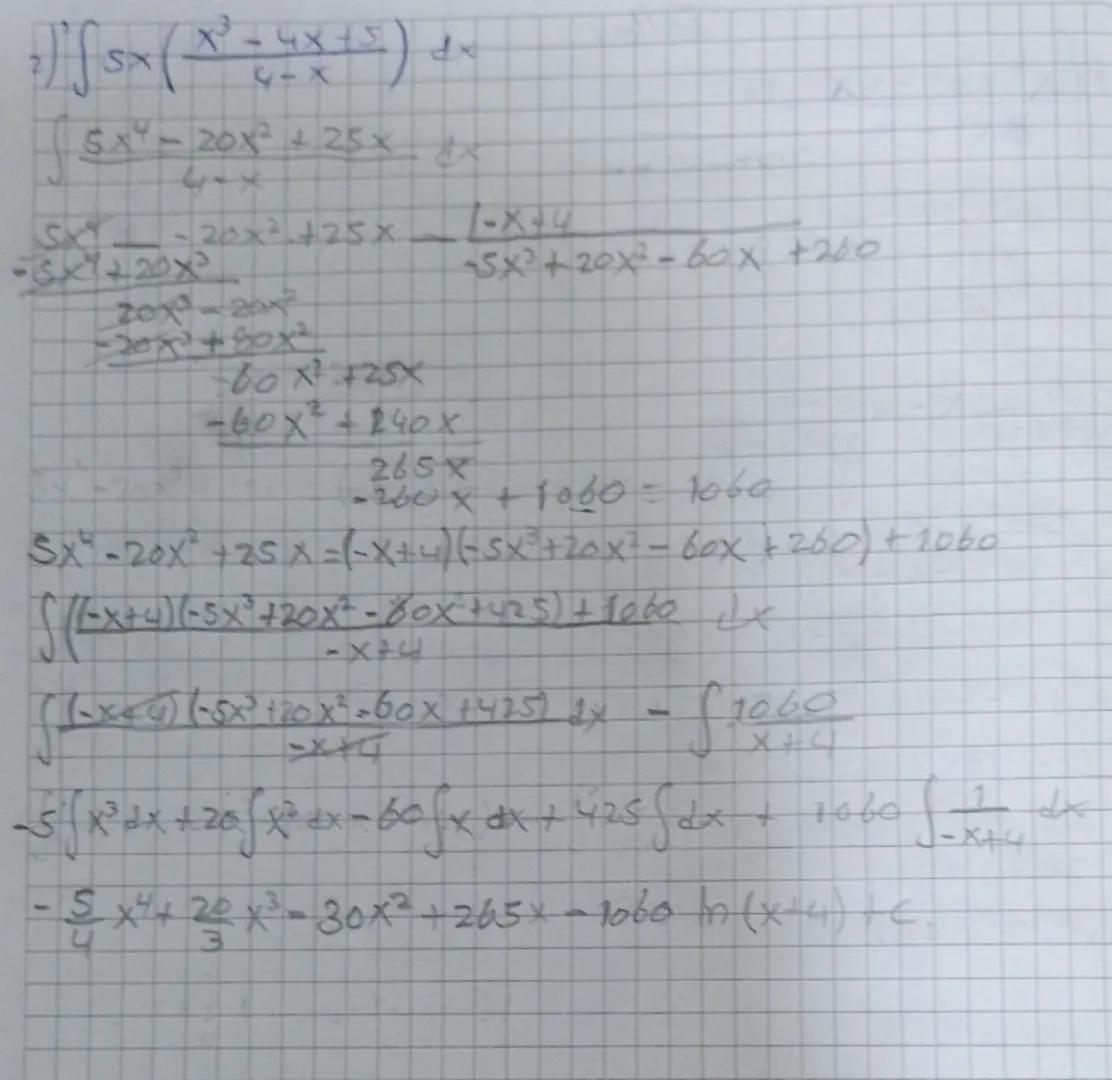 2) ∫ 5x ( (x³ - 4x + 5) / (4 - x) ) dx
∫ (5x⁴ - 20x² + 25x) / (4 - x) dx
5x⁴ __ - 20x² + 25x - |-x+4
-5x⁴ + 20x³ -5x³ + 20x² - 60x + 260
20x³ - 20x²
-20x³ + 80x²
-60x² + 25x
-60x² + 240x
265x
-260x + 1060 = 1060
5x⁴ - 20x² + 25x = (-x+4)(-5x³ + 20x² - 60x + 260) + 1060
∫ ((-x+4)(-5x³ + 20x² - 60x + 425) + 1060) / (-x+4) dx
∫ ((-x+4)(-5x³ + 20x² - 60x + 425)) / (-x+4) dx - ∫ 1060 / (x+4)
-5∫x³dx + 20∫x²dx - 60∫x dx + 425∫dx + 1060∫ 1 / (-x+4) dx
- 5/4 x⁴ + 20/3 x³ - 30x² + 265x - 1060 ln(x+4) + c